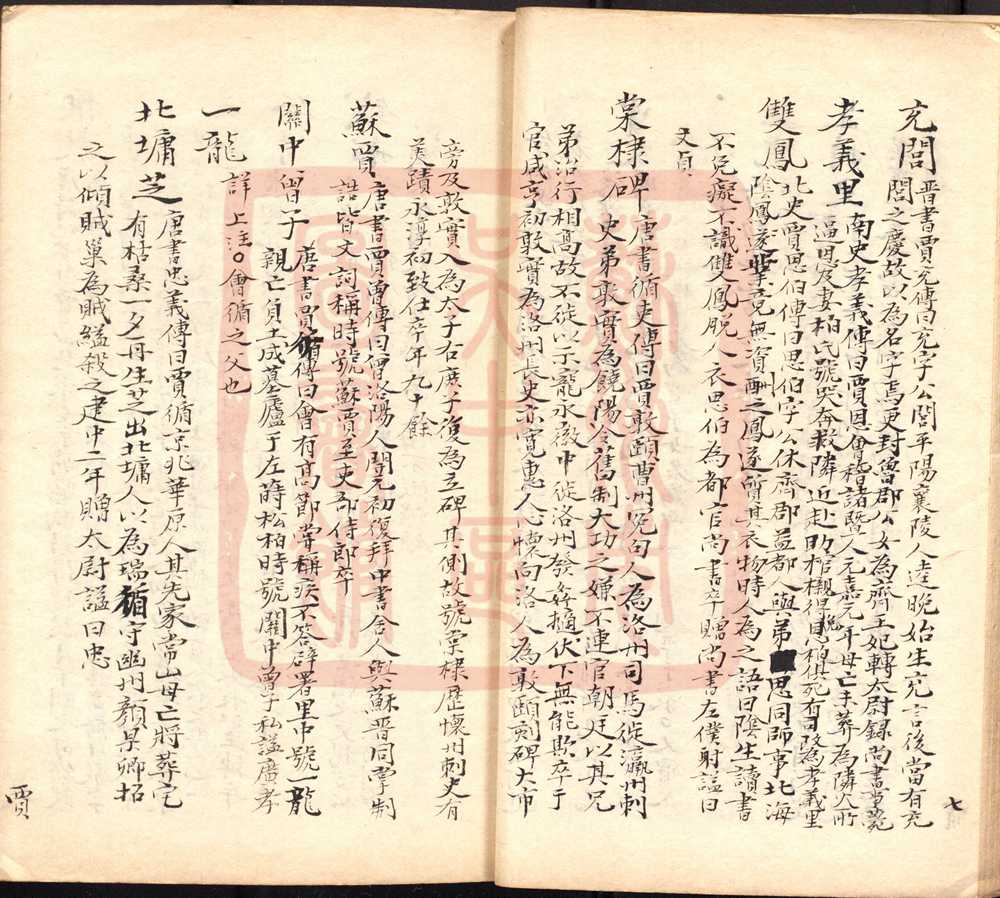 充閭 晉書賈充傳曰充字公閭平陽襄陵人逵晚始生充言後當有充
閭之慶故以為名字焉更封魯郡公女為齊王妃轉太尉錄尚書事薨
孝義里 南史孝義傳曰賈恩會稽諸暨人元嘉元年母亡未葬為隣火所
逼恩及妻柏氏號哭奔救隣近赴助棺櫬得免恩柏俱死有司改為孝義里
雙鳳 北史賈思伯傳曰思伯字公休齊郡益都人與弟思同師事北海
陰鳳遂業竟無資酬之鳳遂質其衣物時人為之語曰陰生讀書
不免癡不識雙鳳脫人衣思伯為都官尚書卒贈尚書左僕射諡曰
文貞
棠棣碑 唐書循吏傳曰賈敦頤曹州冤句人為洛州司馬徙瀛州刺
史弟敦實為饒陽令舊制大功之嫌不連官朝廷以其兄
弟治行相高故不徙以示寵永徽中徙洛州發姦擿伏下無能欺卒于
官咸亨初敦實為洛州長史亦寬惠人心懷向洛人為敦頤刻碑大市
旁及敦實入為太子右庶子復為立碑其側故號棠棣歷懷州刺史有
美蹟永淳初致仕卒年九十餘
蘇賈 唐書賈曾傳曰曾洛陽人開元初復拜中書舍人與蘇晉同掌制
誥皆文詞稱時號蘇賈至吏部侍郎卒
關中曾子 唐書賈循傳曰會有高節嘗稱疾不答辟署里中號一龍
親亡負土成墓廬于左蒔松柏時號關中曾子私諡廣孝
一龍 詳上注○會循之父也
北墉芝 唐書忠義傳曰賈循京兆華原人其先家常山母亡將葬宅
有枯桑一夕再生芝出北墉人以為瑞循守幽州顏杲卿招
之以傾賊巢為賊縊殺之建中二年贈太尉諡曰忠
賈
七